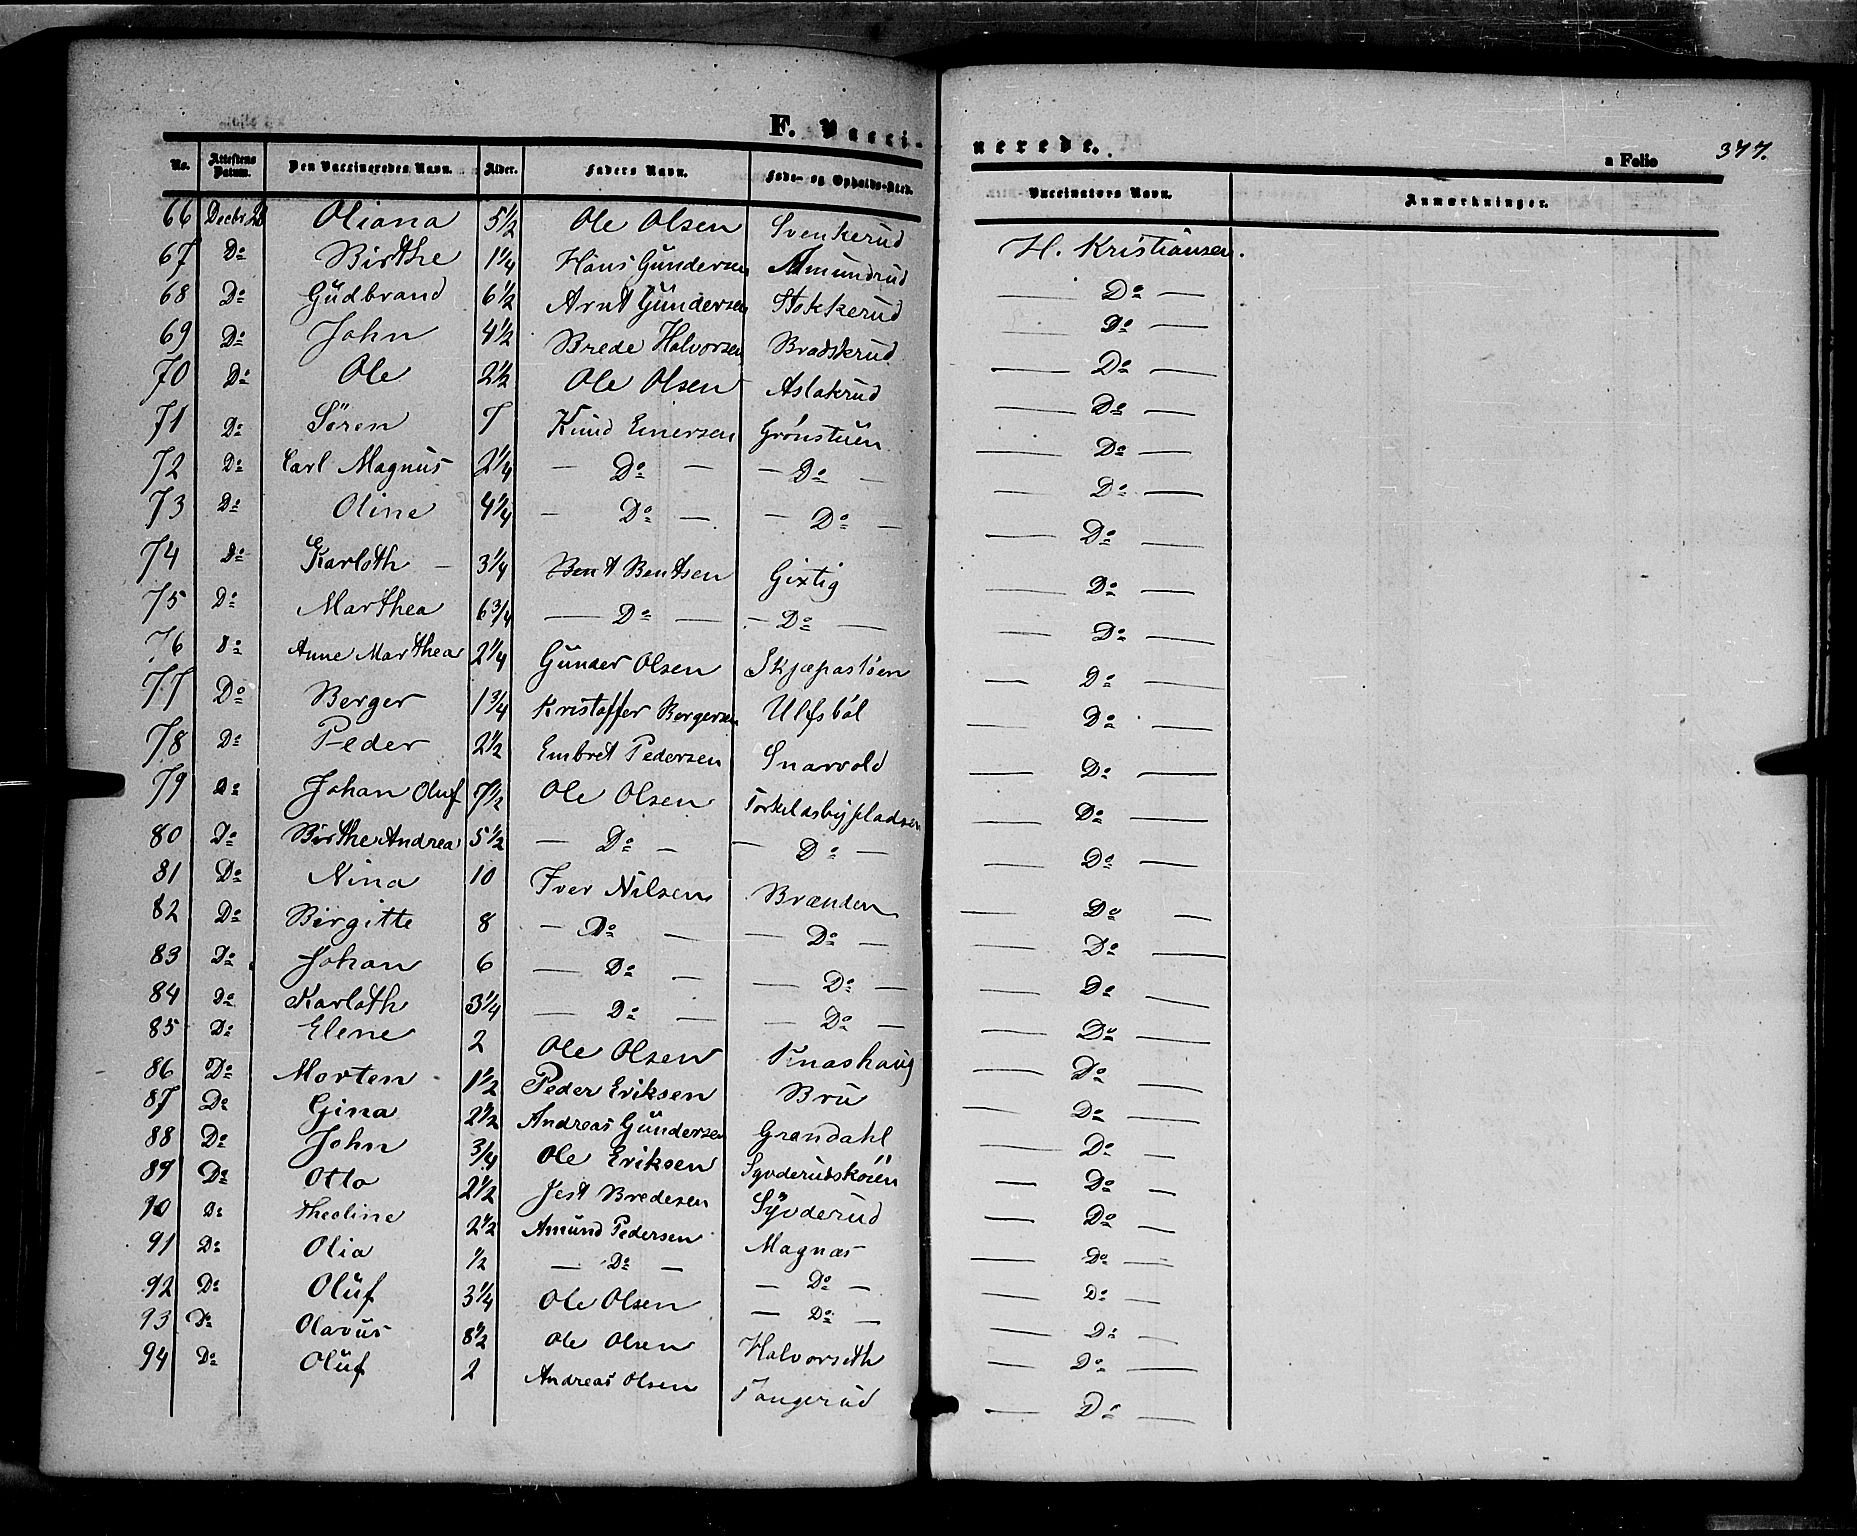 F. Vacci-
nerede.
a Folio 377.
No. | Attestens Datum. | Den Vaccineredes Navn. | Alder. | Faders Navn. | Føde- og Opholds-Sted. | Vaccinators Navn. | Anmærkninger.
66 | Decbr 28 | Oliana | 5 1/2 | Ole Olsen | Svenkerud | H. Kristiansen.
67 | Do | Birthe | 1 1/4 | Hans Gundersen | Amundrud | — Do —
68 | Do | Gudbrand | 6 1/2 | Arnt Gundersen | Stokkerud | — Do —
69 | Do | John | 4 1/2 | Brede Halvorsen | Bradskrud | — Do —
70 | Do | Ole | 2 1/2 | Ole Olsen | Aslakrud | — Do —
71 | Do | Søren | 7 | Knud Einersen | Grønstuen | — Do —
72 | Do | Carl Magnus | 2 1/4 | — Do — | — Do — | — Do —
73 | Do | Oline | 4 1/4 | — Do — | — Do — | — Do —
74 | Do | Karloth – | 3 1/4 | Bent Bentsen | Gixtig | — Do —
75 | Do | Marthea | 6 3/4 | — Do — | — Do — | — Do —
76 | Do | Anne Marthea | 2 1/4 | Gunder Olsen | Skjæpastøen | — Do —
77 | Do | Berger | 1 3/4 | Kristoffer Bergersen | Ulfsböl | — Do —
78 | Do | Peder | 2 1/2 | Embret Pedersen | Snarvold | — Do —
79 | Do | Johan Oluf | 7 1/2 | Ole Olsen | Torkeldsbypladsen | — Do —
80 | Do | Birthe Andrea | 5 1/2 | — Do — | — Do — | — Do —
81 | Do | Nina | 10 | Iver Nilsen | Brænden | — Do —
82 | Do | Birgitte | 8 | — Do — | — Do — | — Do —
83 | Do | Johan | 6 | — Do — | — Do — | — Do —
84 | Do | Karloth | 3 1/4 | — Do — | — Do — | — Do —
85 | Do | Elene | 2 | Ole Olsen | Knashaug | — Do —
86 | Do | Morten | 1 1/2 | Peder Eriksen | Bru | — Do —
87 | Do | Gina | 2 1/2 | Andreas Gundersen | Grøndahl | — Do —
88 | Do | John | 3/4 | Ole Eriksen | Syvderudskoien | — Do —
89 | Do | Otto | 2 1/2 | Jest Bredesen | Syvderud | — Do —
90 | Do | Theoline | 2 1/2 | Amund Pedersen | Magnæs | — Do —
91 | Do | Olia | 1/2 | — Do — | — Do — | — Do —
92 | Do | Oluf | 3 1/4 | Ole Olsen | — Do — | — Do —
93 | Do | Olavus | 8 1/2 | Ole Olsen | Halvorseth | — Do —
94 | Do | Oluf | 2 | Andreas Olsen | Tangerud | — Do —